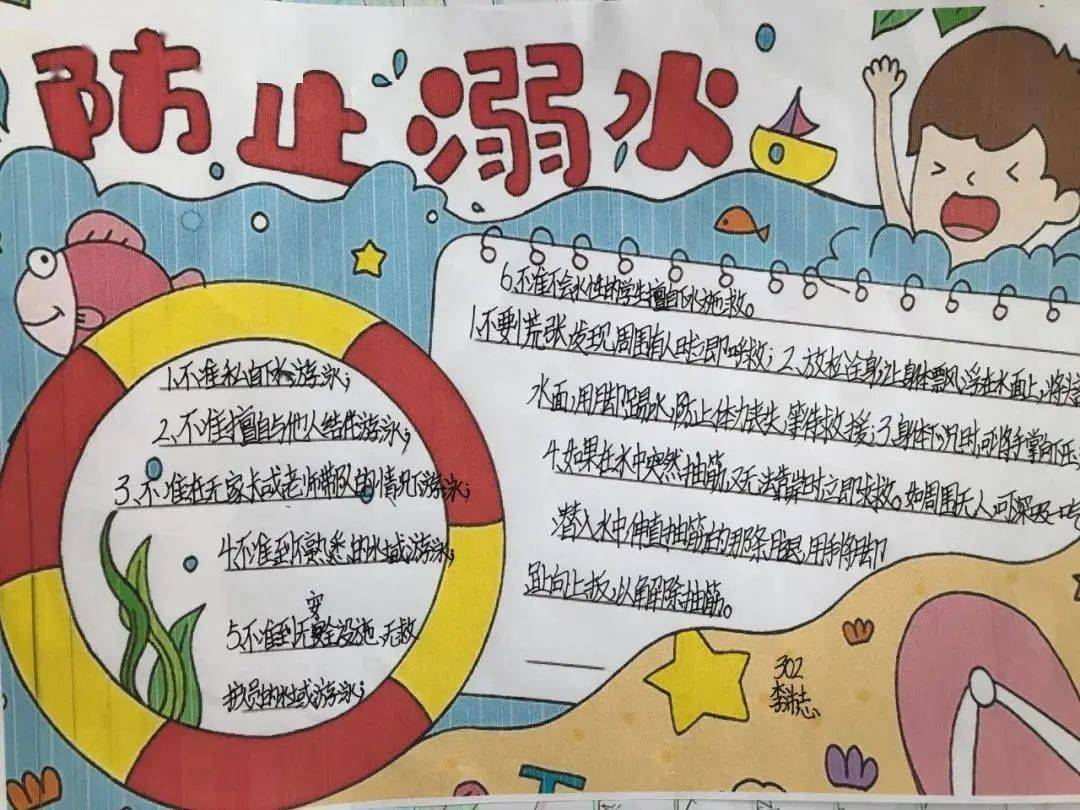 防止溺水
1.不准私自下水游泳;
2.不准擅自与他人结伴游泳;
3.不准在无家长或老师带队的情况下游泳;
4.不准到不熟悉的水域游泳;
安
5.不准到无安全设施、无救
护员的水域游泳;
6.不准不会水性的学生擅自下水施救。
1.不要慌张,发现周围有人时立即呼救;2、放松全身,让身体飘浮在水面上,将
水面,用脚踢水,防止体力丧失,等待救援;3.身体下沉时,可将手掌向下压;
4.如果在水中突然抽筋,又无法靠岸时,立即求救。如周围无人,可深吸一口气
潜入水中,伸直抽筋的那条腿,用手将脚
趾向上扳,以解除抽筋。
302
李
志